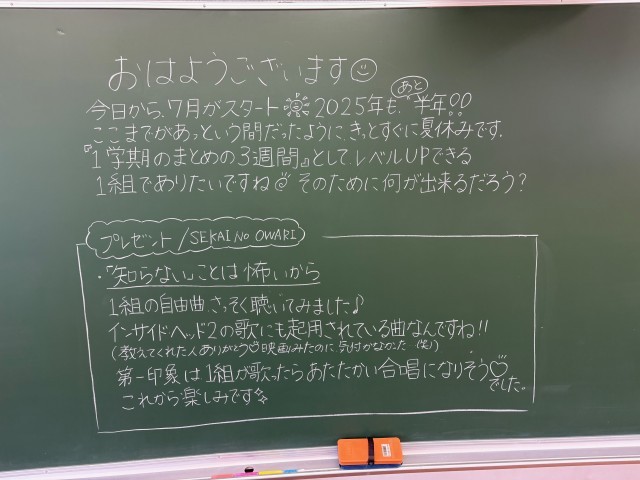 おはようございます☺
今日から、7月がスタート☀ 2025年も、あと半年!!
ここまでがあっという間だったように、きっとすぐに夏休みです。
『1学期のまとめの3週間』として、レベルUPできる
1組でありたいですね☺ そのために何が出来るだろう?
プレゼント/SEKAI NO OWARI
・「知らない」ことは怖いから
1組の自由曲、さっそく聴いてみました♪
インサイドヘッド2の歌にも起用されている曲なんですね!!
(教えてくれた人ありがとう♡映画みたのに気付かなかった(笑))
第一印象は1組が歌ったらあたたかい合唱になりそう♡でした。
これから楽しみです✨